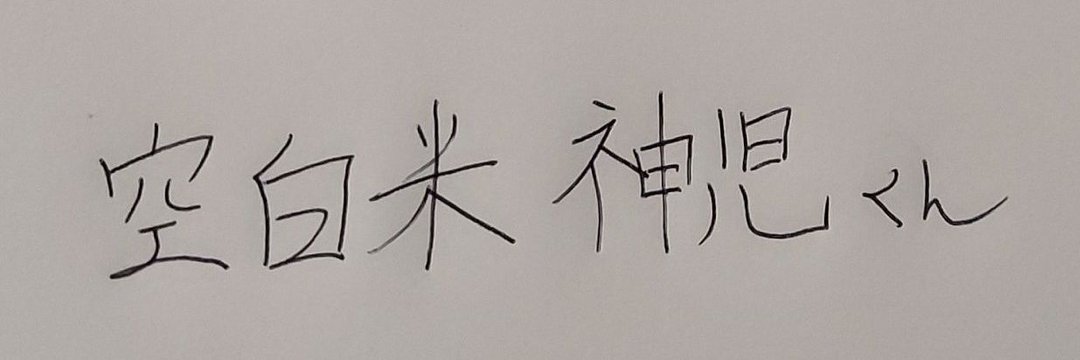 空白米 神児くん